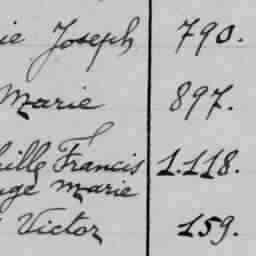 ie Joseph 790.
Marie 897.
ille Francis 1.118.
ge Marie
Victor 159.